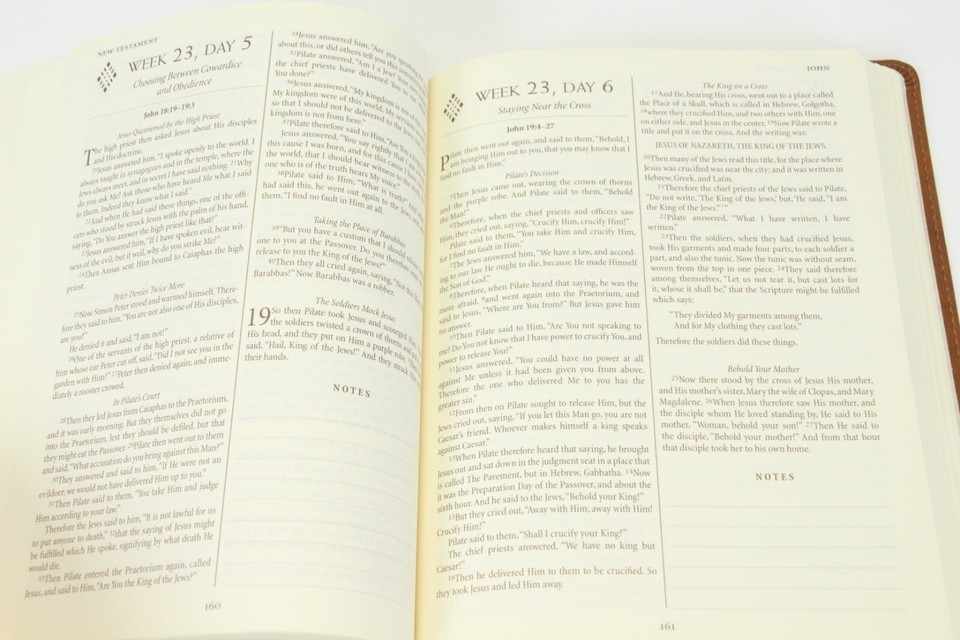 NEW TESTAMENT
WEEK 23, DAY 5
Choosing Between Cowardice
and Obedience
John 18:19–19:3
Jesus Questioned by the High Priest
The high priest then asked Jesus about His disciples
and His doctrine.
20Jesus answered him, "I spoke openly to the world. I
always taught in synagogues and in the temple, where the
Jews always meet, and in secret I have said nothing. 21Why
do you ask Me? Ask those who have heard Me what I said
to them. Indeed they know what I said."
22And when He had said these things, one of the offi-
cers who stood by struck Jesus with the palm of his hand,
saying, "Do You answer the high priest like that?"
23Jesus answered him, "If I have spoken evil, bear wit-
ness of the evil; but if well, why do you strike Me?"
24Then Annas sent Him bound to Caiaphas the high
priest.
Peter Denies Twice More
25Now Simon Peter stood and warmed himself. There-
fore they said to him, "You are not also one of His disciples,
are you?"
He denied it and said, "I am not!"
26One of the servants of the high priest, a relative of
him whose ear Peter cut off, said, "Did I not see you in the
garden with Him?" 27Peter then denied again; and imme-
diately a rooster crowed.
In Pilate's Court
28Then they led Jesus from Caiaphas to the Praetorium,
and it was early morning. But they themselves did not go
into the Praetorium, lest they should be defiled, but that
they might eat the Passover. 29Pilate then went out to them
and said, "What accusation do you bring against this Man?"
30They answered and said to him, "If He were not an
evildoer, we would not have delivered Him up to you."
31Then Pilate said to them, "You take Him and judge
Him according to your law."
Therefore the Jews said to him, "It is not lawful for us
to put anyone to death," 32that the saying of Jesus might
be fulfilled which He spoke, signifying by what death He
would die.
33Then Pilate entered the Praetorium again, called
Jesus, and said to Him, "Are You the King of the Jews?"
34Jesus answered him, "Are you speaking
about this, or did others tell you this
35Pilate answered, "Am I a Jew? Your
the chief priests have delivered You
You done?"
36Jesus answered, "My kingdom is not of
My kingdom were of this world, My servants
so that I should not be delivered to the Jews;
kingdom is not from here."
37Pilate therefore said to Him, "Are You a
Jesus answered, "You say rightly that I
this cause I was born, and for this cause I
the world, that I should bear witness to
one who is of the truth hears My voice."
38Pilate said to Him, "What is truth?" And
had said this, he went out again to the Jews,
them, "I find no fault in Him at all.
Taking the Place of Barabbas
39"But you have a custom that I should release
one to you at the Passover. Do you therefore
release to you the King of the Jews?"
40Then they all cried again, saying, "Not this
Barabbas!" Now Barabbas was a robber.
The Soldiers Mock Jesus
19 So then Pilate took Jesus and scourged
the soldiers twisted a crown of thorns and
His head, and they put on Him a purple robe.
said, "Hail, King of the Jews!" And they struck
their hands.
NOTES
160
JOHN
WEEK 23, DAY 6
Staying Near the Cross
John 19:4–27
Pilate then went out again, and said to them, "Behold, I
am bringing Him out to you, that you may know that I
find no fault in Him."
Pilate's Decision
5Then Jesus came out, wearing the crown of thorns
and the purple robe. And Pilate said to them, "Behold
the Man!"
6Therefore, when the chief priests and officers saw
Him, they cried out, saying, "Crucify Him, crucify Him!"
Pilate said to them, "You take Him and crucify Him,
for I find no fault in Him."
7The Jews answered him, "We have a law, and accord-
ing to our law He ought to die, because He made Himself
the Son of God."
8Therefore, when Pilate heard that saying, he was the
more afraid, 9and went again into the Praetorium, and
said to Jesus, "Where are You from?" But Jesus gave him
no answer.
10Then Pilate said to Him, "Are You not speaking to
me? Do You not know that I have power to crucify You, and
power to release You?"
11Jesus answered, "You could have no power at all
against Me unless it had been given you from above.
Therefore the one who delivered Me to you has the
greater sin."
12From then on Pilate sought to release Him, but the
Jews cried out, saying, "If you let this Man go, you are not
Caesar's friend. Whoever makes himself a king speaks
against Caesar."
13When Pilate therefore heard that saying, he brought
Jesus out and sat down in the judgment seat in a place that
is called The Pavement, but in Hebrew, Gabbatha. 14Now
it was the Preparation Day of the Passover, and about the
sixth hour. And he said to the Jews, "Behold your King!"
15But they cried out, "Away with Him, away with Him!
Crucify Him!"
Pilate said to them, "Shall I crucify your King?"
The chief priests answered, "We have no king but
Caesar!"
16Then he delivered Him to them to be crucified. So
they took Jesus and led Him away.
The King on a Cross
17And He, bearing His cross, went out to a place called
the Place of a Skull, which is called in Hebrew, Golgotha,
18where they crucified Him, and two others with Him, one
on either side, and Jesus in the center. 19Now Pilate wrote a
title and put it on the cross. And the writing was:
JESUS OF NAZARETH, THE KING OF THE JEWS.
20Then many of the Jews read this title, for the place where
Jesus was crucified was near the city; and it was written in
Hebrew, Greek, and Latin.
21Therefore the chief priests of the Jews said to Pilate,
"Do not write, 'The King of the Jews,' but, 'He said, "I am
the King of the Jews."'"
22Pilate answered, "What I have written, I have
written."
23Then the soldiers, when they had crucified Jesus,
took His garments and made four parts, to each soldier a
part, and also the tunic. Now the tunic was without seam,
woven from the top in one piece. 24They said therefore
among themselves, "Let us not tear it, but cast lots for
it, whose it shall be," that the Scripture might be fulfilled
which says:
"They divided My garments among them,
And for My clothing they cast lots."
Therefore the soldiers did these things.
Behold Your Mother
25Now there stood by the cross of Jesus His mother,
and His mother's sister, Mary the wife of Clopas, and Mary
Magdalene. 26When Jesus therefore saw His mother, and
the disciple whom He loved standing by, He said to His
mother, "Woman, behold your son!" 27Then He said to
the disciple, "Behold your mother!" And from that hour
that disciple took her to his own home.
NOTES
161